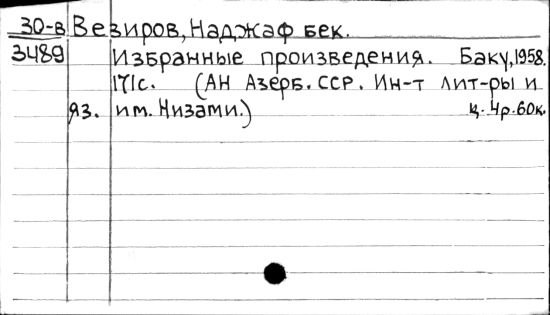 30-в Везиров, Наджаф бек.
3489 Избранные произведения. Баку, 1958.
171с. (АН Азерб. ССР. Ин-т лит-ры и
яз. им. Низами.) ц. 4р. 60к.